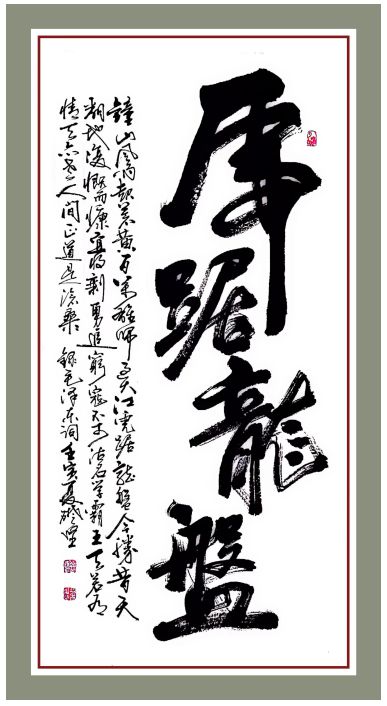 虎踞龍盤
鐘山風雨起蒼黃百萬雄師过大江虎踞龍盤今勝昔天
翻地覆慨而慷宜將剩勇追窮寇不可沽名学霸王天若有
情天亦老人间正道是滄桑 錄毛泽东词壬寅夏